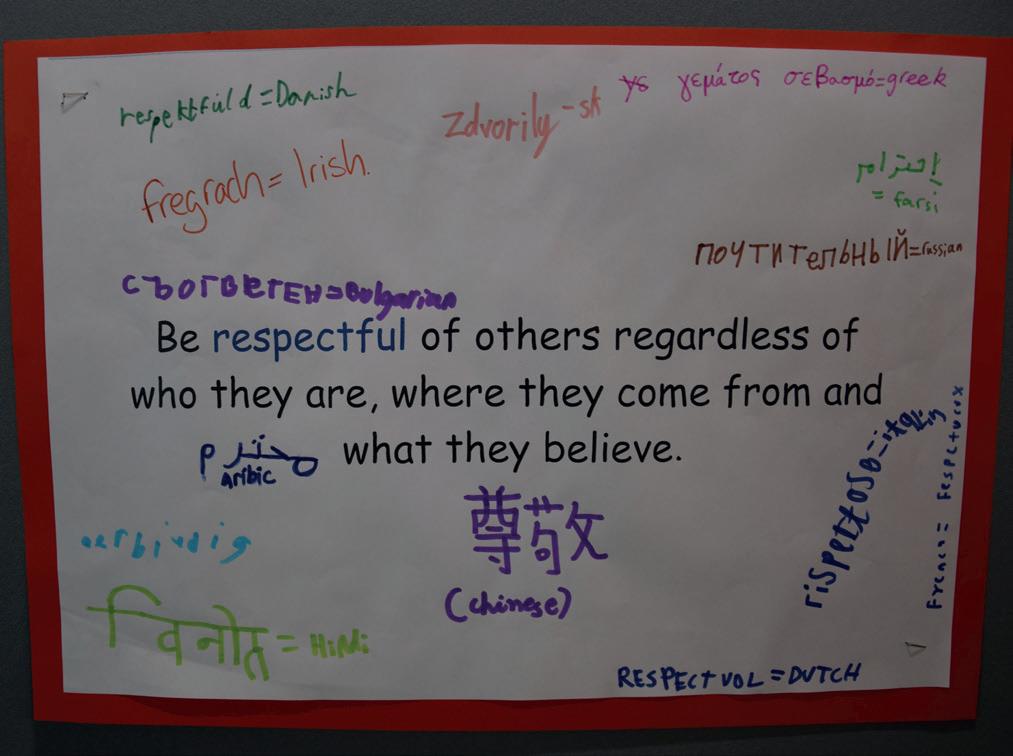 respektfuld = Danish
zdvorily - sk
γε γεμάτος σεβασμό = greek
fregrach = Irish.
إحترام
= farsi
почтительный = russian
съответен = Bulgarian
Be respectful of others regardless of
who they are, where they come from and
what they believe.
محترم
aribic
rispettoso = italian
French = respectueux
尊敬
(chinese)
aerbiudig
विनोत = HiNdi
RESPECTVOL = DUTCH